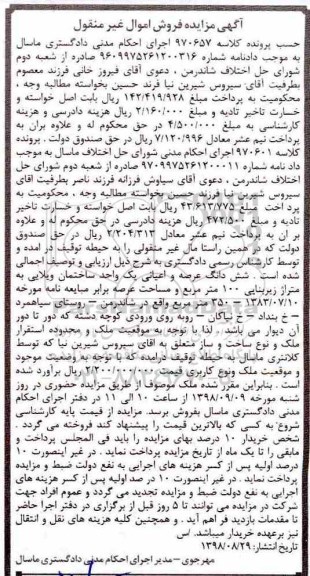 آگهی مزایده فروش اموال غیر منقول
حسب پرونده کلاسه ۹۷۰۶۵۷ اجرای احکام مدنی دادگستری ماسال
به موجب دادنامه شماره ۹۶۰۹۹۷۵۲۶۱۲۰۰۳۱۶ صادره از شعبه دوم
شورای حل اختلاف شاندرمن ، دعوی آقای فیروز خانی فرزند معصوم
بطرفیت آقای سیروس شیرین نیا فرزند حسین بخواسته مطالبه وجه ،
محکومیت به پرداخت مبلغ ۱۴۲/۴۱۹/۹۲۸ ریال بابت اصل خواسته و
خسارت تاخیر تادیه و مبلغ ۲/۱۶۰/۰۰۰ ریال هزینه دادرسی و هزینه
کارشناسی به مبلغ ۴/۵۰۰/۰۰۰ در حق محکوم له و علاوه بران به
پرداخت نیم عشر معادل ۷/۱۲۰/۹۹۶ ریال در حق صندوق دولت . پرونده
کلاسه ۹۷۰۶۰۱ اجرای احکام مدنی شورای حل اختلاف ماسال به موجب
داد نامه شماره ۹۷۰۹۹۷۵۲۶۱۲۰۰۰۱۱ صادره از شعبه دوم شورای حل
اختلاف شاندرمن ، دعوی آقای سیاوش فرزانه فرزند ناصر بطرفیت آقای
سیروس شیرین نیا فرزند حسین بخواسته مطالبه وجه ، محکومیت به
پرداخت مبلغ ۴۳/۶۱۳/۷۷۵ ریال بابت اصل خواسته و خسارت تاخیر
تادیه و مبلغ ۴۷۲/۵۰۰ ریال هزینه دادرسی در حق محکوم له و علاوه
بر ان به پرداخت نیم عشر معادل ۲/۲۰۴/۳۱۳ ریال در حق صندوق
دولت که در همین راستا مال غیر منقولی را به حیطه توقیف در امده و
توسط کارشناس رسمی دادگستری به شرح ذیل ارزیابی و توصیف اجمالی
شده است . شش دانگ عرصه و اعیانی یک واحد ساختمان ویلایی به
متراژ زیربنایی ۱۰۰ متر مربع و مساحت عرصه برابر مبایعه نامه مورخه
۱۳۸۳/۰۷/۱۰ - ۳۵۰ متر مربع واقع در شاندرمن – روستای سیاهمرد
– خ بنداد – خ نیاکان – روبه روی ورودی کوچه دشته که دور تا دور
آن دیوار می باشد . لذا با توجه به موقعیت ملک و محدوده استقرار
ملک و نوع ساخت و ساز متعلق به اقای سیروس شیرین نیا که توسط
کلانتری ماسال به حیطه توقیف درامده که با توجه به وضعیت موجود
و موقعیت ملک ونوع کاربری قیمت پایه ۲/۲۰۰/۰۰۰/۰۰۰ ریال برآورد شده
است . بنابراین مقرر شده ملک موصوف از طریق مزایده حضوری در روز
شنبه مورخه ۱۳۹۸/۰۹/۰۹ از ساعت ۱۰ الی ۱۱ در دفتر اجرای احکام
مدنی دادگستری ماسال بفروش برسد. مزایده از قیمت پایه کارشناسی
شروع به کسی که بالاترین قیمت را پیشنهاد کند فروخته می گردد .
شخص خریدار ۱۰ درصد بهای مزایده را باید فی المجلس پرداخت و
مابقی را تا یک ماه از تاریخ مزایده پرداخت نماید . در غیر اینصورت ۱۰
درصد اولیه پس از کسر هزینه های اجرایی به نفع دولت ضبط و مزایده
پرداخت نماید . در غیر اینصورت ۱۰ در صد اولیه پس از کسر هزینه های
اجرایی به نفع دولت ضبط و مزایده تجدید می گردد و عموم افراد جهت
شرکت در مزایده می توانند تا ۵ روز قبل از برگزاری در دفتر اجرا حاضر
تا مقدمات بازدید فر اهم آید . و همچنین کلیه هزینه های نقل و انتقال
نیز برعهده خریدار میباشد. /س
تاریخ انتشار: ۱۳۹۸/۰۸/۲۹
مهرجوی – مدیر اجرای احکام مدنی دادگستری ماسال